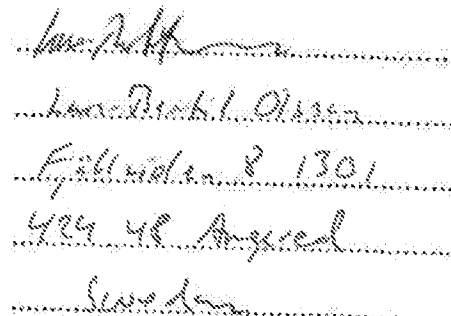 Lars-Bertil Olsson
Fjällviden 8 1301
424 48 Angered
Sweden